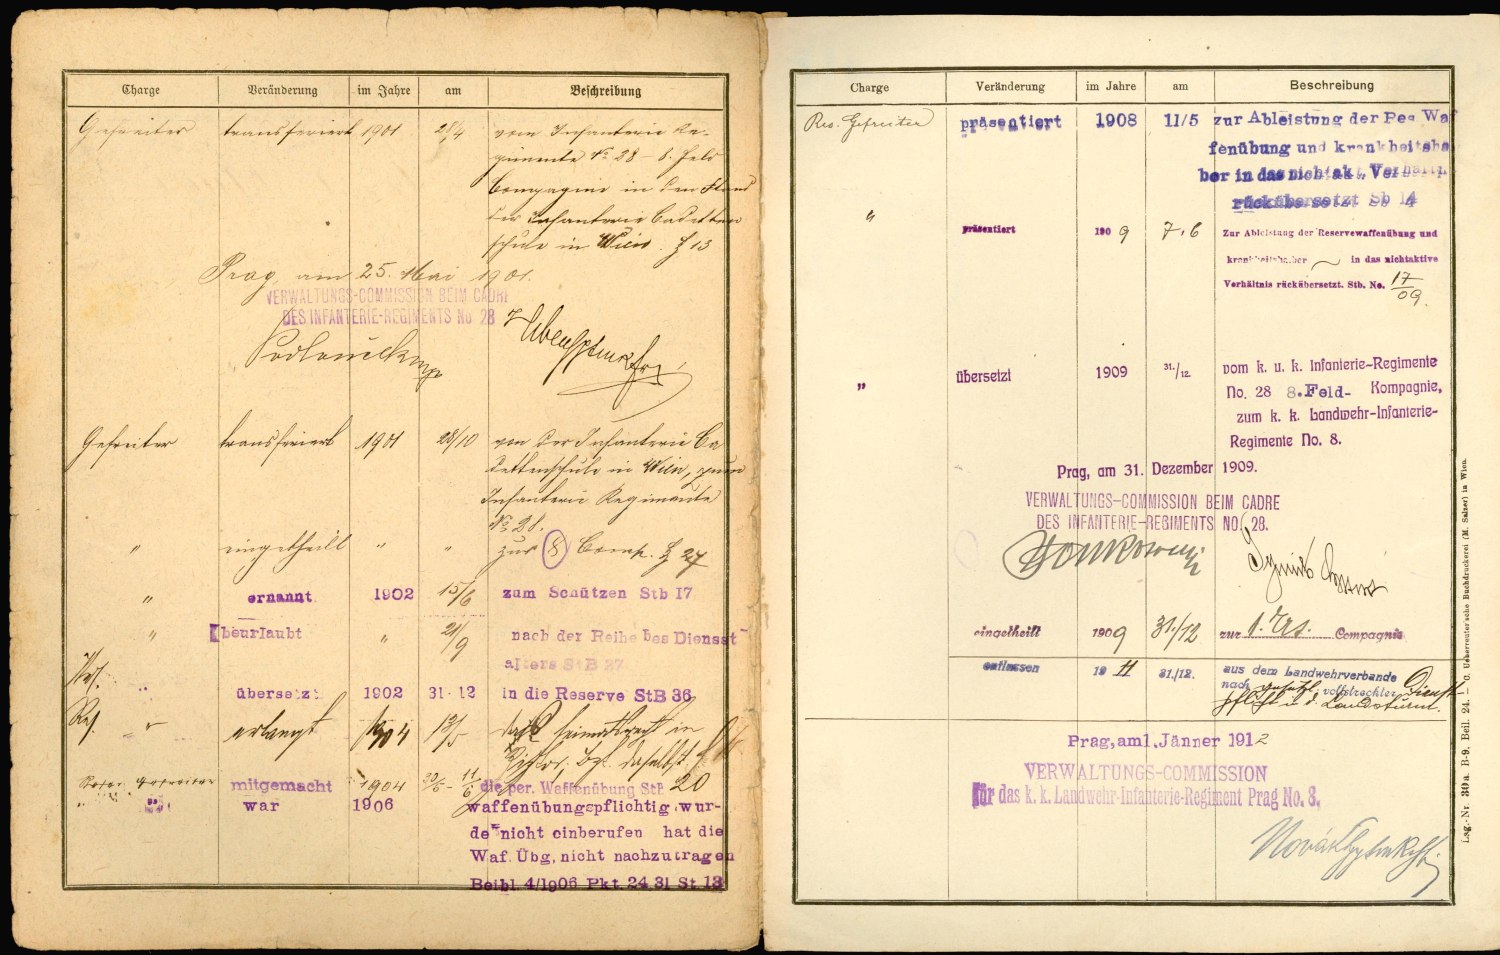 Charge Veränderung im Jahre am Beschreibung
Gefreiter transferiert 1901 28/4 vom Infanterie Re-
gimente No 28 – 8. Feld
Compagnie in den Stand
der Infanterie Cadetten
schule in Wien. Z 13
Prag, am 25. Mai 1901.
VERWALTUNGS-COMMISSION BEIM CADRE
DES INFANTERIE-REGIMENTS No 28
Gefreiter transferiert 1901 28/10 von der Infanterie Ca
dettenschule in Wien, zum
Infanterie Regimente
No 28.
" eingetheilt " " zur 8 Comp. Z 27
" ernannt 1902 15/6 zum Schützen Stb 17
" beurlaubt " 21/9 nach der Reihe des Dienst-
alters StB 27
Res. " übersetzt 1902 31 · 12 in die Reserve StB 36
Res. " erlangt 1904 13/5 das Heimatrecht in
daselbst.
Gefreiter mitgemacht 1904 30/5 - 11/6 die per. Waffenübung StB 20
" war 1906 waffenübungspflichtig wur-
de nicht einberufen hat die
Waf. Übg, nicht nachzutragen
Beibl. 4/1906 Pkt. 24 31 St 13
Charge Veränderung im Jahre am Beschreibung
Res. Gefreiter präsentiert 1908 11/5 zur Ableistung der Res Waf
fenübung und krankheitsha
ber in das nichtakt. Verhältn
rückübersetzt Sb 14
" präsentiert 1909 7.6 Zur Ableistung der Reservewaffenübung und
krankheitshaber in das nichtaktive
Verhältnis rückübersetzt. Stb. No. 17/09.
" übersetzt 1909 31./12. vom k. u. k. Infanterie-Regimente
No. 28 8. Feld- Kompagnie,
zum k. k. Landwehr-Infanterie-
Regimente No. 8.
Prag, am 31. Dezember 1909.
VERWALTUNGS-COMMISSION BEIM CADRE
DES INFANTERIE-REGIMENTS NO. 28.
eingeteilt 1909 31./12 zur 1. Compagnie
entlassen 1911 31./12. aus dem Landwehrverbande
nach gesetzl. vollstreckter Dienst-
pflicht u. d. Landsturm.
Prag, am 1. Jänner 1912
VERWALTUNGS-COMMISSION
für das k. k. Landwehr-Infanterie-Regiment Prag No. 8.
Lsg.-Nr. 39a. B-9. Beil. 24. — G. Ueberreuter'sche Buchdruckerei (M. Salzer) in Wien.